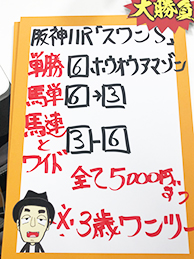 大勝負
阪神11R「スワンS」
単勝 6 ホウオウアマゾン
馬単 6→3
馬連とワイド 3-6
全て5000円ずつ
※3歳ワンツー